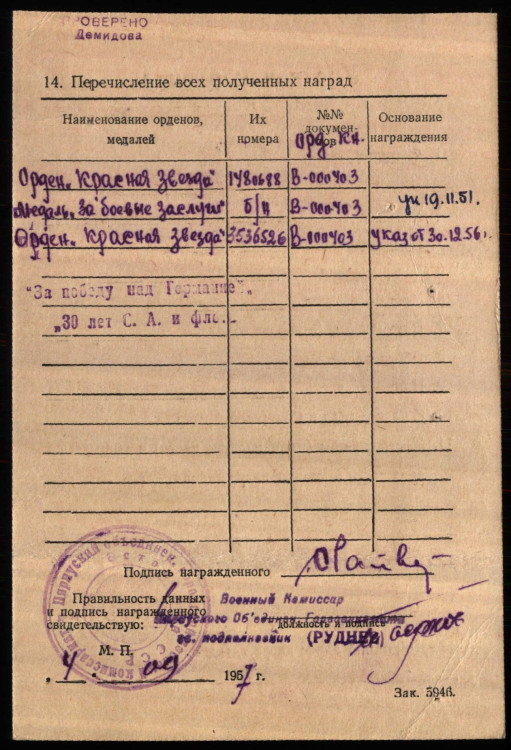 ПРОВЕРЕНО
Демидова
14. Перечисление всех полученных наград
Наименование орденов, медалей
Их номера
№№ документов
Орд. кн.
Основание награждения
Орден „Красная звезда“ 1780688 В-000403
Медаль „За боевые заслуги“ б/н В-000403 ук 19.11.51.
Орден „Красная звезда“ 3536526 В-000403 Указ от 30.12.56г.
"За победу над Германией„
„30 лет С. А. и фло
Подпись награжденного
Правильность данных
и подпись награжденного
свидетельствую:
Военный Комиссар
Пярнуского Об'един. Горвоенкомата
должность и подпись
подполковник (РУДНЕВ)
М. П.
4. 09 1957 г.
Зак. 5946.